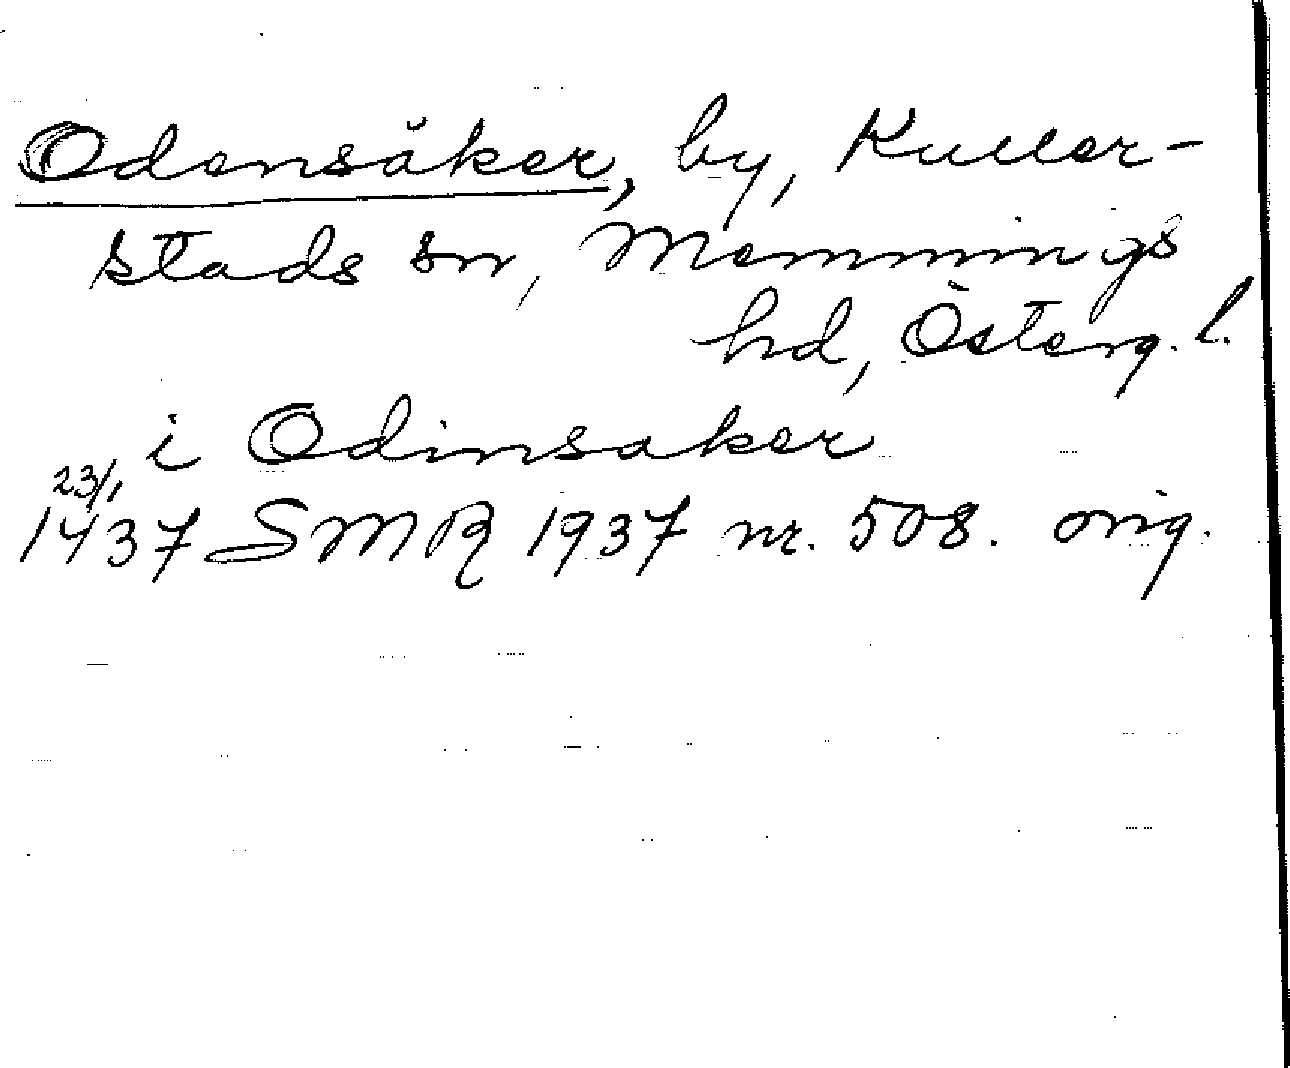 Odensåker, by, Kuller-
stads sn, Memmings
hd, Österg. l.
i Odinsaker
23/1
1437 SMR 1937 nr. 508. orig.